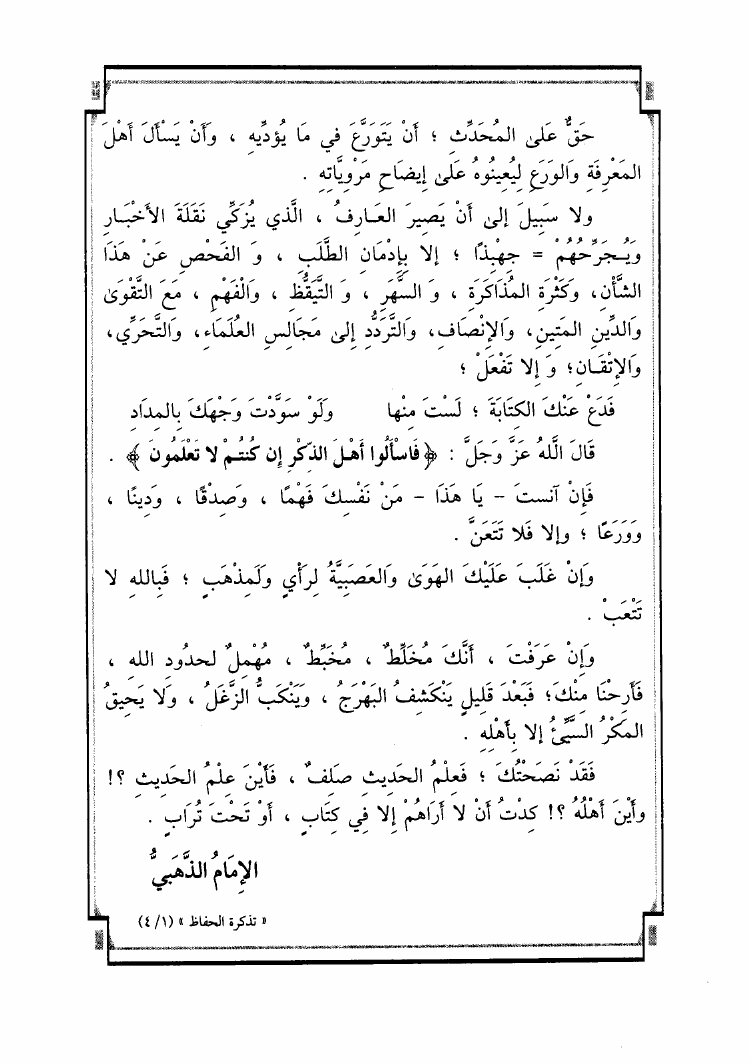 حَقٌّ عَلَى المُحَدِّثِ ؛ أَنْ يَتَوَرَّعَ فِي مَا يُؤدِّيهِ ، وَأَنْ يَسْأَلَ أَهْلَ
المَعْرِفَةِ وَالوَرَعِ لِيُعِينُوهُ عَلَى إِيضَاحِ مَرْوِيَّاتِهِ .
ولا سَبِيلَ إِلى أَنْ يَصِيرَ العَـارِفُ ، الَّذِي يُزَكِّي نَقَلَةَ الأَخْبَـارِ
وَيُـجَرِّحُهُمْ = جِهْبِذًا ؛ إِلا بِإِدْمَانِ الطَّلَبِ ، وَ الفَحْصِ عَنْ هَذَا
الشَّأْنِ، وَكَثْرَةِ المُذَاكَرَةِ ، وَ السَّهَرِ ، وَ التَّيَقُّظِ ، وَالْفَهْمِ ، مَعَ التَّقْوَىٰ
وَالدِّينِ المَتِينِ، وَالإِنْصَافِ، وَالتَّرَدُّدِ إِلىٰ مَجَالِسِ العُلَمَاءِ، وَالتَّحَرِّي،
وَالإِتْقَـانِ؛ وَ إِلا تَفْعَلْ ؛
فَدَعْ عَنْكَ الكِتَابَةَ ؛ لَسْتَ مِنْها ولَو سَوَّدْتَ وَجْهَكَ بِالمِدَادِ
قَالَ اللَّهُ عَزَّ وَجَلَّ : ﴿ فَاسْأَلُوا أَهْلَ الذِّكْرِ إِن كُنتُـمْ لا تَعْلَمُونَ ﴾ .
فَإِنْ آنستَ – يَا هَذَا – مَنْ نَفْسِكَ فَهْمًا ، وَصِدْقًا ، وَدِينًا ،
وَوَرَعًا ؛ وإلا فَلا تَتَعَنَّ .
وَإِنْ غَلَبَ عَلَيْكَ الهَوَىٰ وَالعَصَبِيَّةُ لِرَأْيٍ وَلِمَذْهَبٍ ؛ فَبالله لا
تَتْعَبْ .
وَإِنْ عَرَفْتَ ، أَنَّكَ مُخَلِّطٌ ، مُخَبِّطٌ ، مُهْمِلٌ لحدُودِ الله ،
فَأَرِحْنَا مِنْكَ؛ فَبَعْدَ قَلِيلٍ يَنْكَشِفُ البَهْرَجُ ، وَيَنْكَبُّ الزَّغَلُ ، وَلا يَحِيقُ
المَكْرُ السَّيِّئُ إِلا بِأَهْلِهِ .
فَقَدْ نَصَحْتُكَ ؛ فَعِلْمُ الحَدِيثِ صَلِفٌ ، فَأَيْنَ عِلْمُ الحَدِيثِ ؟!
وأَيْنَ أَهْلُهُ ؟! كِدْتُ أَنْ لا أَرَاهُمْ إِلا فِي كِتَابٍ ، أَوْ تَحْتَ تُرَابٍ .
الإِمَامُ الذَّهَبِيُّ
« تذكرة الحفاظ » (١/ ٤)